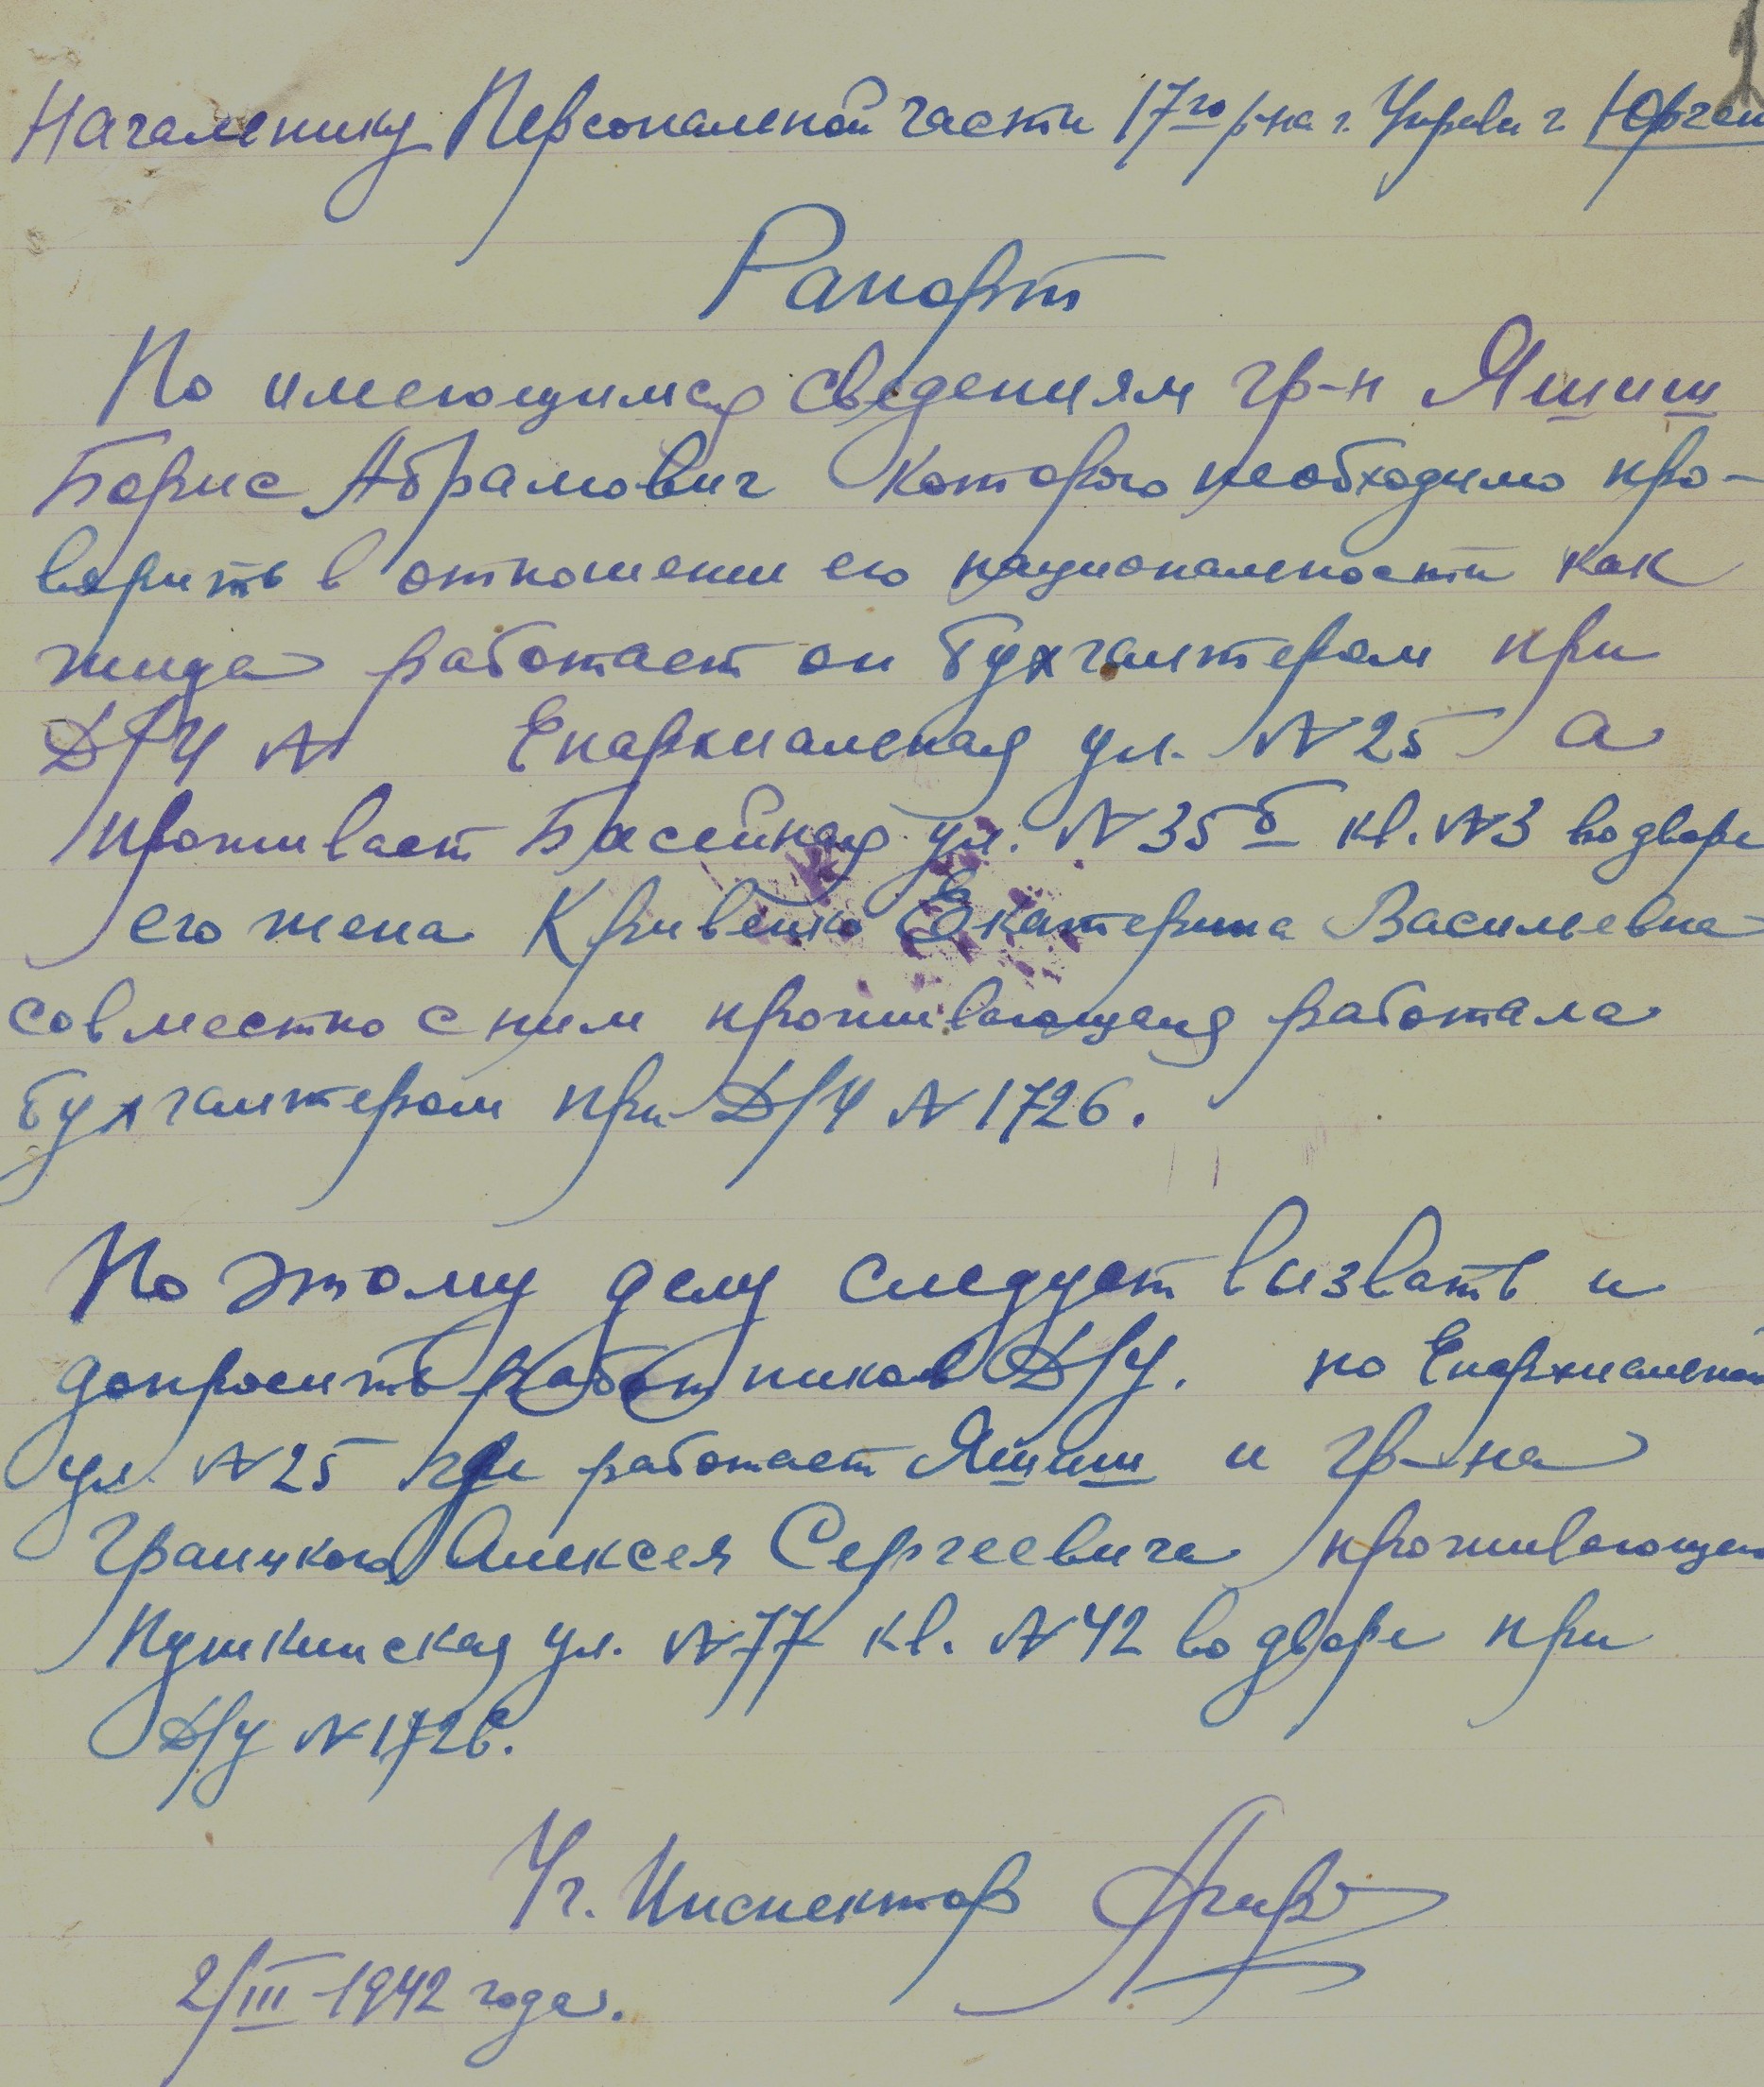 1
Начальнику Персональной части 17го р-на г. Управы г.
Рапорт
По имеющимся сведениям гр-н Яшиш
Борис Абрамович которого необходимо про-
верить в отношении его национальности как
жида работает он бухгалтером при
Д/У № Епархиальная ул. № 25 а
проживает Бассейная ул. № 35б кв. № 3 во дворе
его жена Кривенко Екатерина Васильевна
совместно с ним проживающая работала
бухгалтером при Д/У № 1726.
По этому делу следует визвать и
допросить работников Д/У. по Епархиальной
ул. № 25 где работает Яшиш и гр-на
Алексея Сергеевича проживающего
Пушкинская ул. № 77 кв. № 42 во дворе при
Д/У № 1726.
Уч. Инспектор
2/III-1942 года.